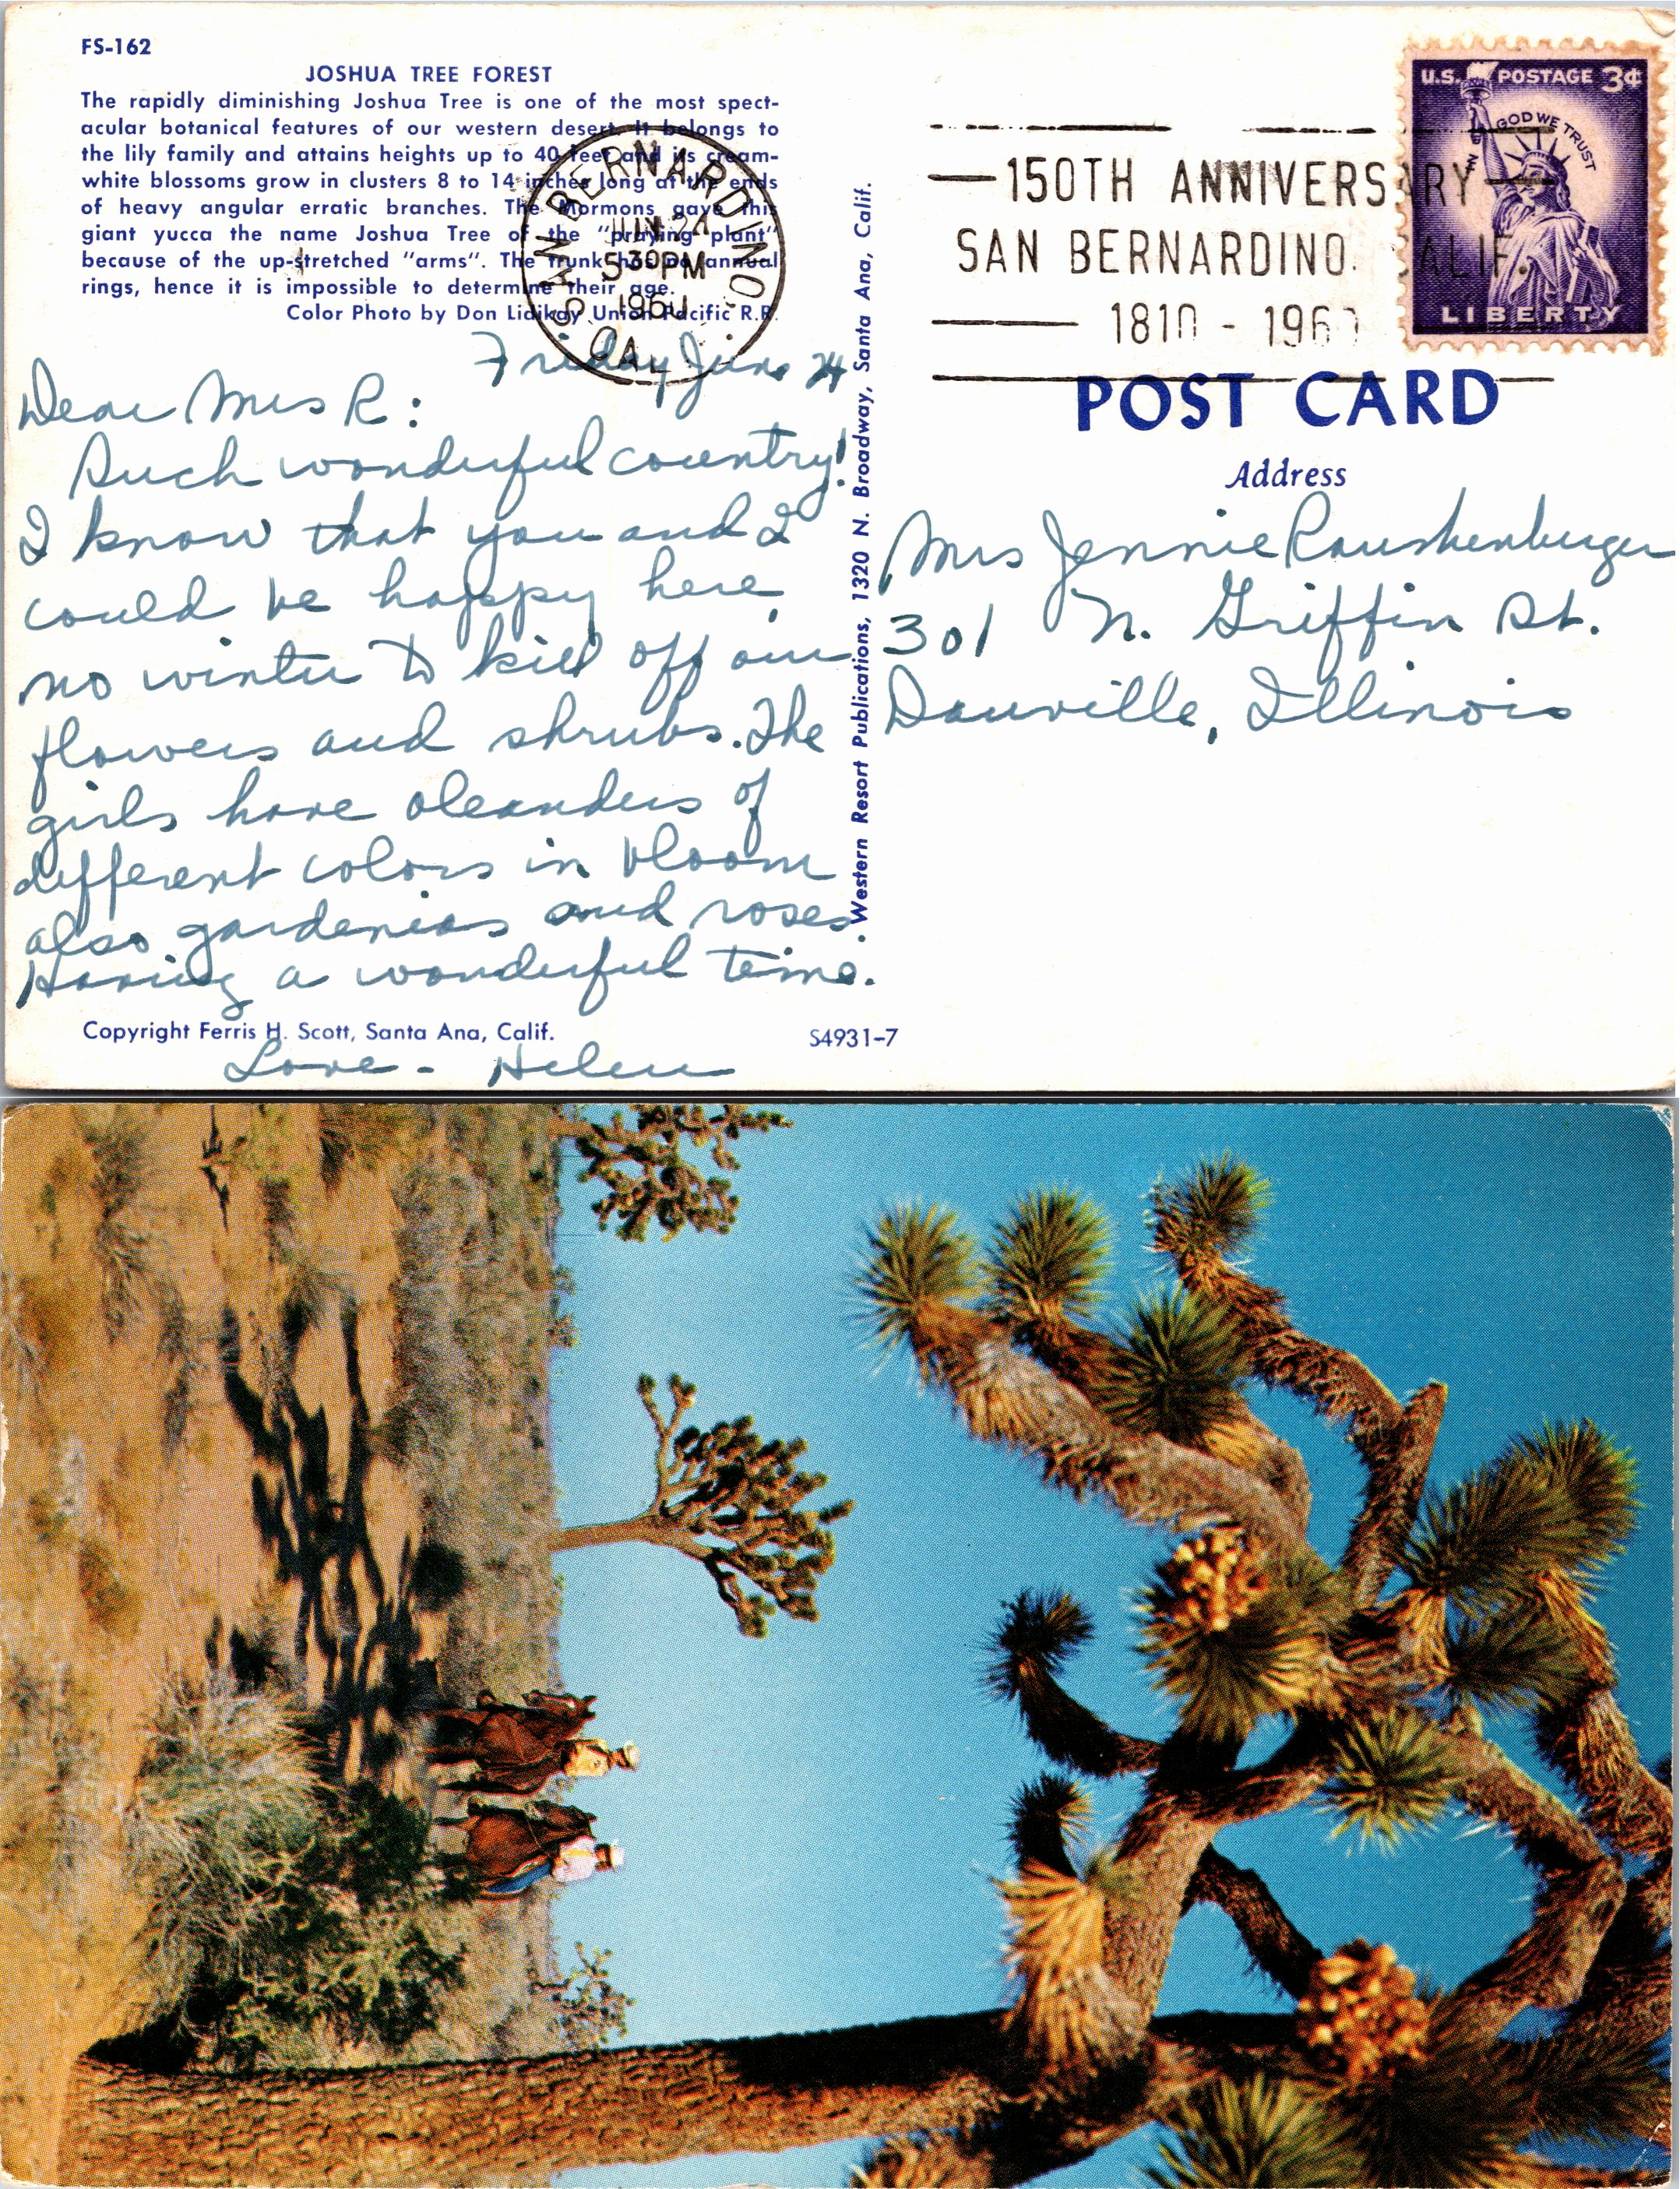 FS-162
JOSHUA TREE FOREST
The rapidly diminishing Joshua Tree is one of the most spect-
acular botanical features of our western desert. It belongs to
the lily family and attains heights up to 40 feet and its cream-
white blossoms grow in clusters 8 to 14 inches long at the ends
of heavy angular erratic branches. The Mormons gave this
giant yucca the name Joshua Tree of the "praying plant"
because of the up-stretched "arms". The trunk has no annual
rings, hence it is impossible to determine their age.
Color Photo by Don Lidikay Union Pacific R.R.
SAN BERNARDINO
JUN 24
5 30 PM
1960
CAL.
Friday June 24
Dear Mrs R:
Such wonderful country!
I know that you and I
could be happy here,
no winter to kill off our
flowers and shrubs. The
girls have oleanders of
different colors in bloom
also gardenias and roses.
Having a wonderful time.
Copyright Ferris H. Scott, Santa Ana, Calif.
S4931-7
Love - Helen
Western Resort Publications, 1320 N. Broadway, Santa Ana, Calif.
150TH ANNIVERSARY
SAN BERNARDINO, CALIF.
1810 - 1960
U.S. POSTAGE 3¢
IN GOD WE TRUST
LIBERTY
POST CARD
Address
Mrs Jennie Raushenberger
301 N. Griffin St.
Danville, Illinois